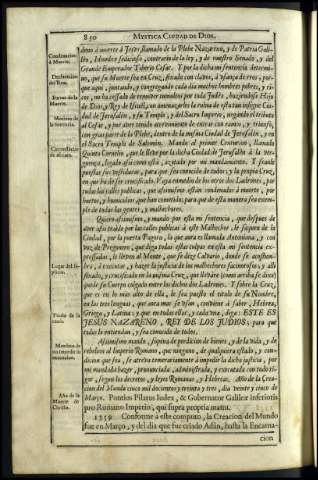 830 MYSTICA CIUDAD DE DIOS.
Condenacion à Muerte.
deno à muerte à Jesus llamado de la Plebe Nazareno, y de Patria Galileo,
hombre sedicioso, contrario de la ley, y de nuestro Senado, y del
Grande Emperador Tiberio Cesar. Y por la dicha mi sentencia determino,
que su Muerte sea en Cruz, fixado con clavos, à usança de reos; porque
aqui, juntando, y congregando cada dia muchos hombres pobres, y ricos,
no ha cessado de remover tumultos por toda Judea, haziendose Hijo
de Dios, y Rey de Israel, con amenazarles la ruina de esta tan insigne Ciudad
de Jerusalén, y su Templo, y del Sacro Imperio, negando el tributo
al Cesar, y por aver tenido atrevimiento de entrar con ramos, y triunfo,
con gran parte de la Plebe, dentro de la misma Ciudad de Jerusalén, y en
el Sacro Templo de Salomón. Mando al primer Centurion, llamado
Quinto Cornelio, que le lleve por la dicha Ciudad de Jerusalén à la verguença,
ligado assi como está, y açotado por mi mandamiento. Y seanle
puestas sus vestiduras, para que sea conocido de todos, y la propia Cruz,
en que ha de ser crucificado. Vaya en medio de los otros dos Ladrones, por
todas las calles publicas, que assimismo están condenados à muerte, por
hurtos, y homicidios que han cometido, para que de esta manera sea exemplo
de todas las gentes, y malhechores.
Quiero assimismo, y mando por esta mi sentencia, que despues de
aver assi traido por las calles publicas à este Malhechor, le saquen de la
Ciudad, por la puerta Pagora, la que agora es llamada Antoniana, y con
voz de Pregonero, que diga todas estas culpas en esta mi sentencia expressadas,
le lleven al Monte, que se dize Calvario, donde se acostumbra,
à executar, y hazer la justicia de los malhechores facinorosos, y alli
fixado, y crucificado en la misma Cruz, que llevare (como arriba se dixo)
quede su Cuerpo colgado entre los dichos dos Ladrones. Y sobre la Cruz,
que es en lo mas alto de ella, le sea puesto el titulo de su Nombre,
en las tres lenguas, que aora mas se usan, conviene à saber, Hebrea,
Griega, y Latina; y que en todas ellas, y cada una, diga: ESTE ES
JESUS NAZARENO, REY DE LOS JUDIOS; para que
todos lo entiendan, y sea conocido de todos.
Assimismo mando, so pena de perdicion de bienes, y de la vida, y de
rebelion al Imperio Romano, que ninguno, de qualquiera estado, y condicion
que sea, se atreva temerariamente à impedir la dicha justicia, por
mi mandada hazer, pronunciada, administrada, y executada con todo rigor,
segun los decretos, y leyes Romanas, y Hebreas. Año de la Creacion
del Mundo cinco mil docientos y treinta y tres, dia veinte y cinco de
Março. Pontius Pilatus Judex, & Gubernator Galileæ inferioris
pro Romano Imperio, qui supra propria manu.
1359 Conforme à este computo, la Creacion del Mundo
fue en Março, y del dia que fue criado Adán, hasta la Encarna-
cion